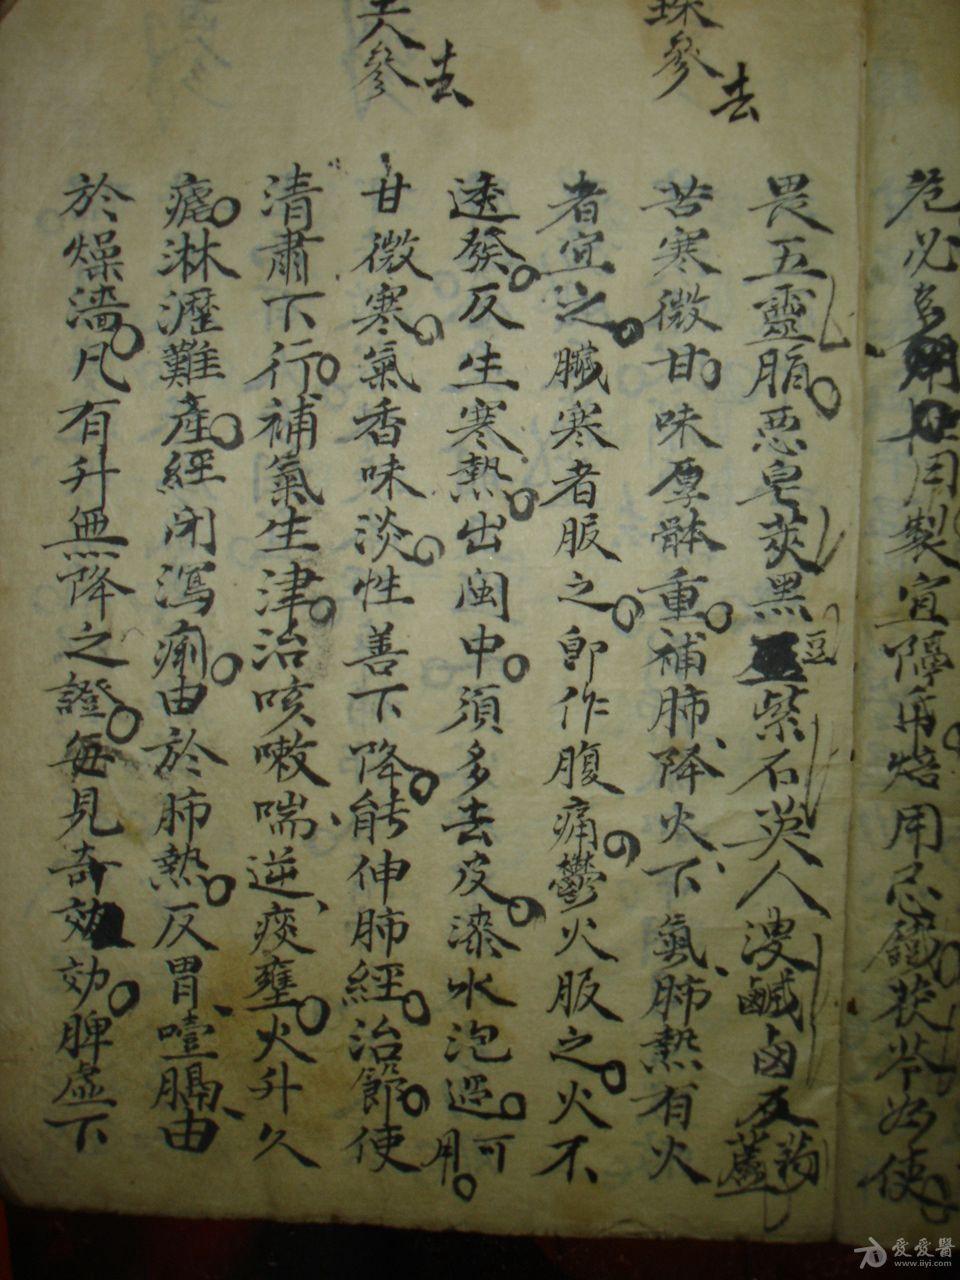 危必多用生用製宜隔紙焙用忌鐵茯苓為使
畏五靈脂惡皂莢黑豆紫石英人溲鹹鹵反藜蘆
珠參去
苦寒微甘味厚體重補肺降火下氣肺熱有火
者宜之臟寒者服之即作腹痛鬱火服之火不
透發反生寒熱出閩中須多去皮滾水泡過可用
土人參去
甘微寒氣香味淡性善下降能伸肺經治節使
清肅下行補氣生津治咳嗽喘逆痰壅火升久
瘧淋瀝難產經閉瀉痢由於肺熱反胃噎膈由
於燥濇凡有升無降之證每見奇効脾虛下
愛愛醫
www.iiyi.com